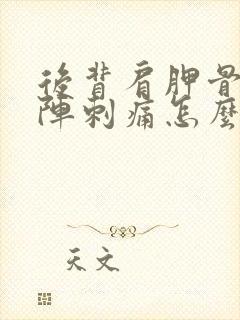 後背肩胛骨
陣刺痛怎麼
天文